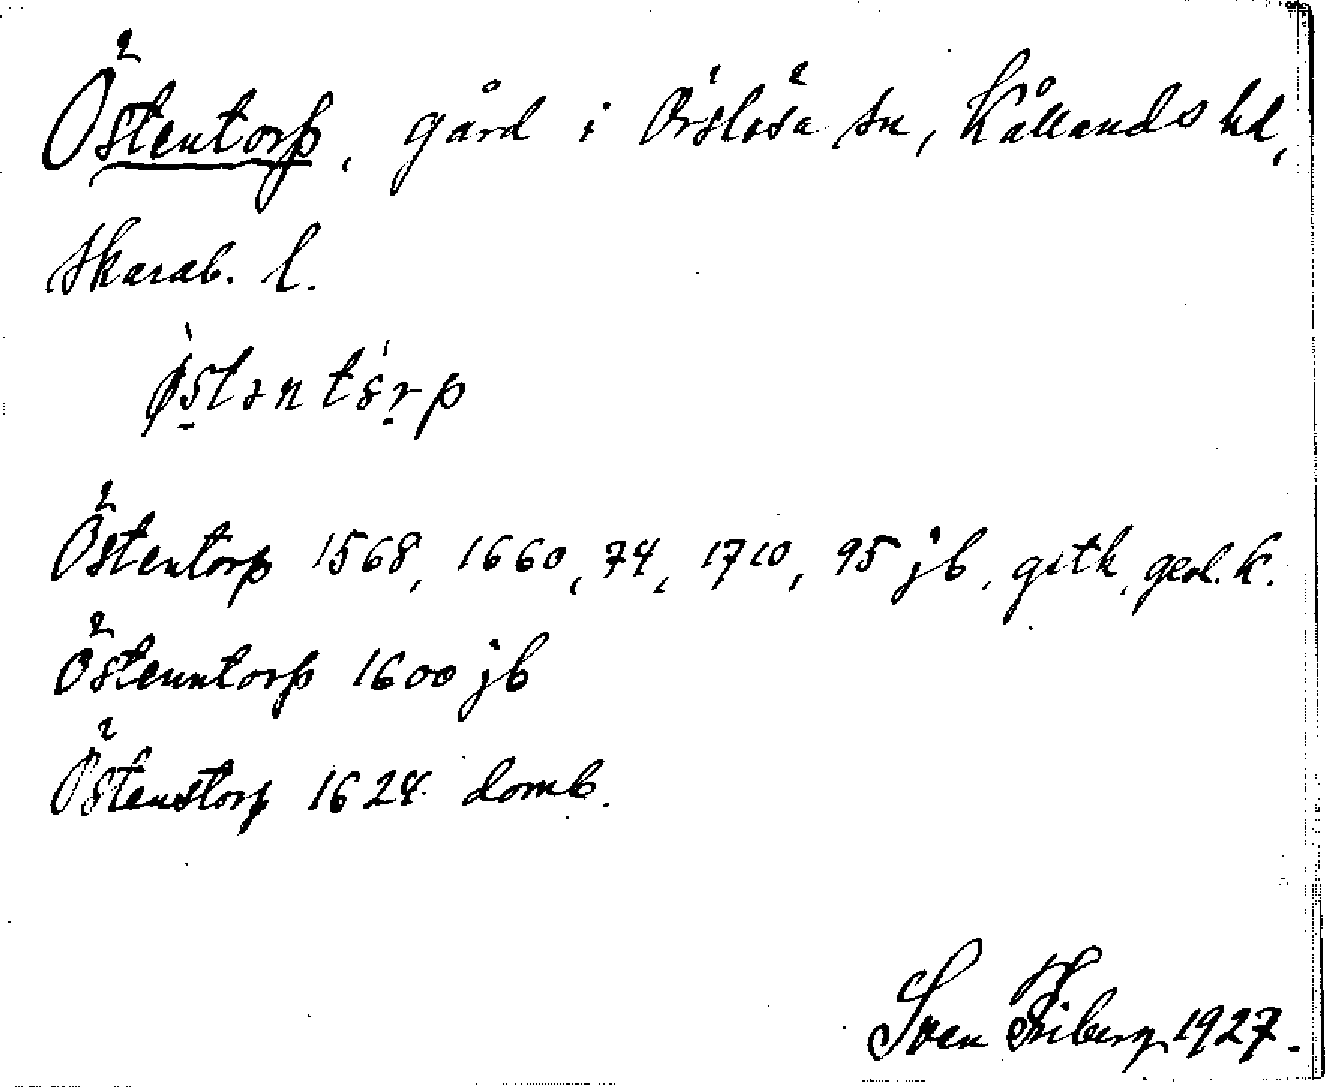 Östentorp, gård i Örslösa sn, Kållands hd,
Skarab. l.
Östentorp 1568, 1660, 74, 1710, 95 jb, gstk, geol. k.
Östenntorp 1600 jb
Östenstorp 1624 domb.
Sven Friberg 1927.